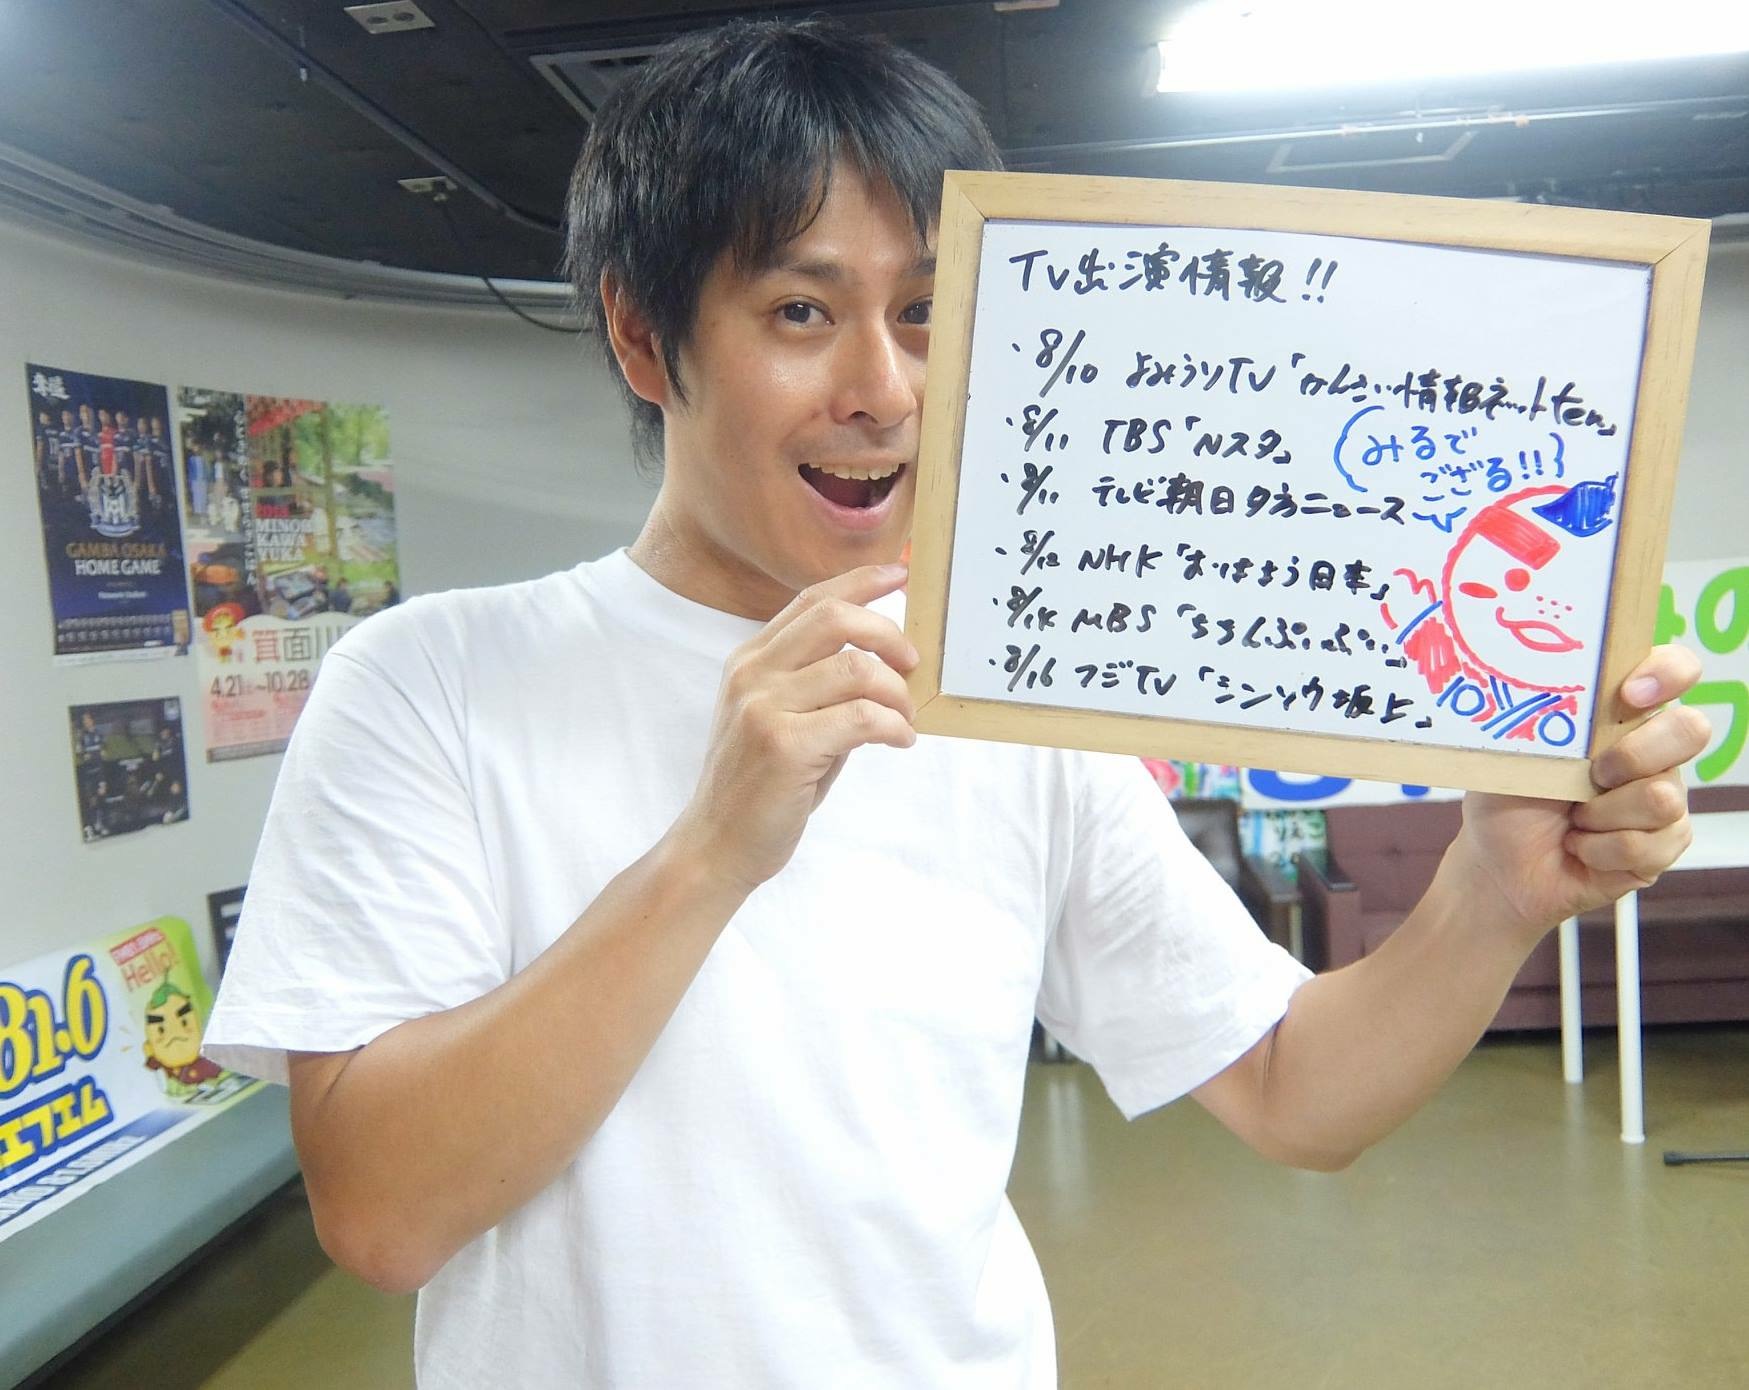 TV出演情報!!
・8/10 よみうりTV「かんさい情報ネットten」
・8/11 TBS「Nスタ」
みるで
ござる!!
・8/11 テレビ朝日夕方ニュース
・8/12 NHK「おはよう日本」
・8/14 MBS「ちちんぷいぷい」
・8/16 フジTV「シンソウ坂上」
GAMBA OSAKA
HOME GAME
MINOH
KAWA
YUKA
箕面川
4.21 10.28
Hello!
81.6
エフエム